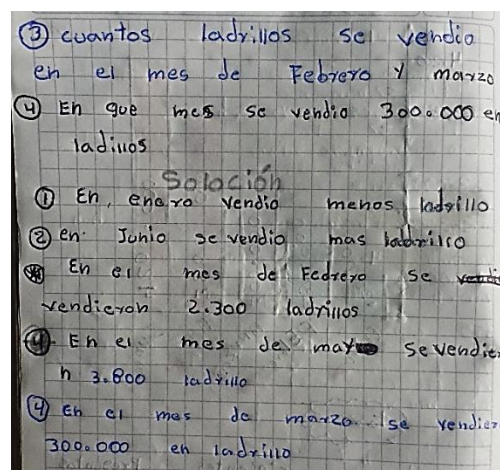 ③ cuantos ladrillos se vendio
en el mes de Febrero y marzo
④ En que mes se vendio 300.000 en
ladillos
Solación
① En, enero vendio menos ladrillo
② en Junio se vendio mas ladrillo
En el mes de Fedrero se
vendieron 2.300 ladrillos
④ En el mes de se vendier
n 3.800 ladrillo
④ En el mes de marzo se vendier
300.000 en ladrillo